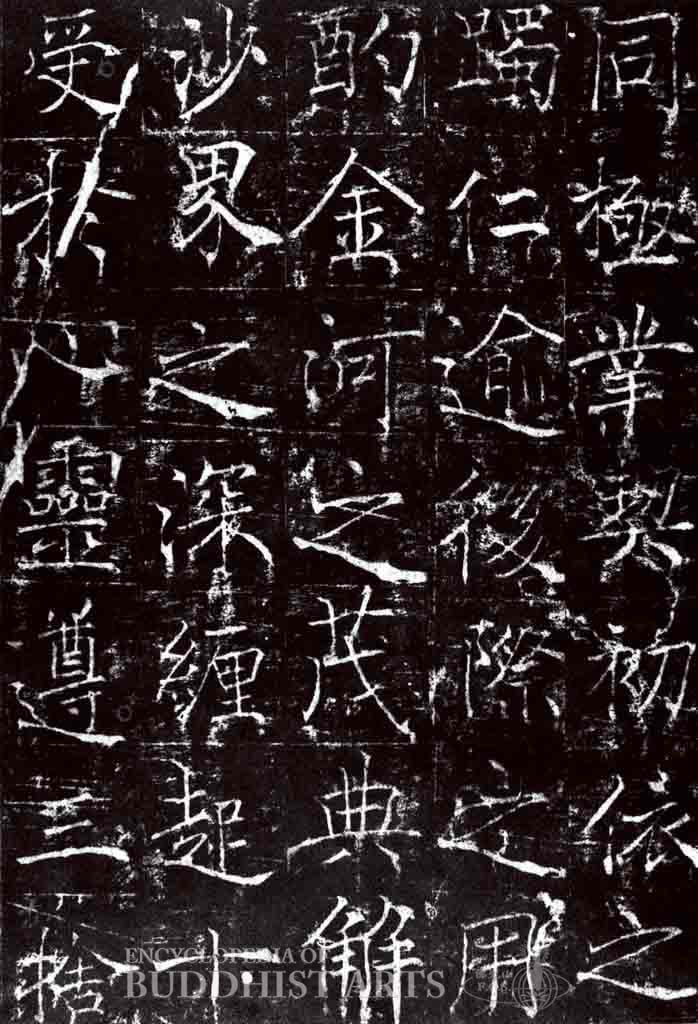 同極業契初依之
躅仁逾後際之用
酌金河之茂典
沙界之深纏起十
受於靈遵三
ENCYCLOPEDIA OF
BUDDHIST ARTS